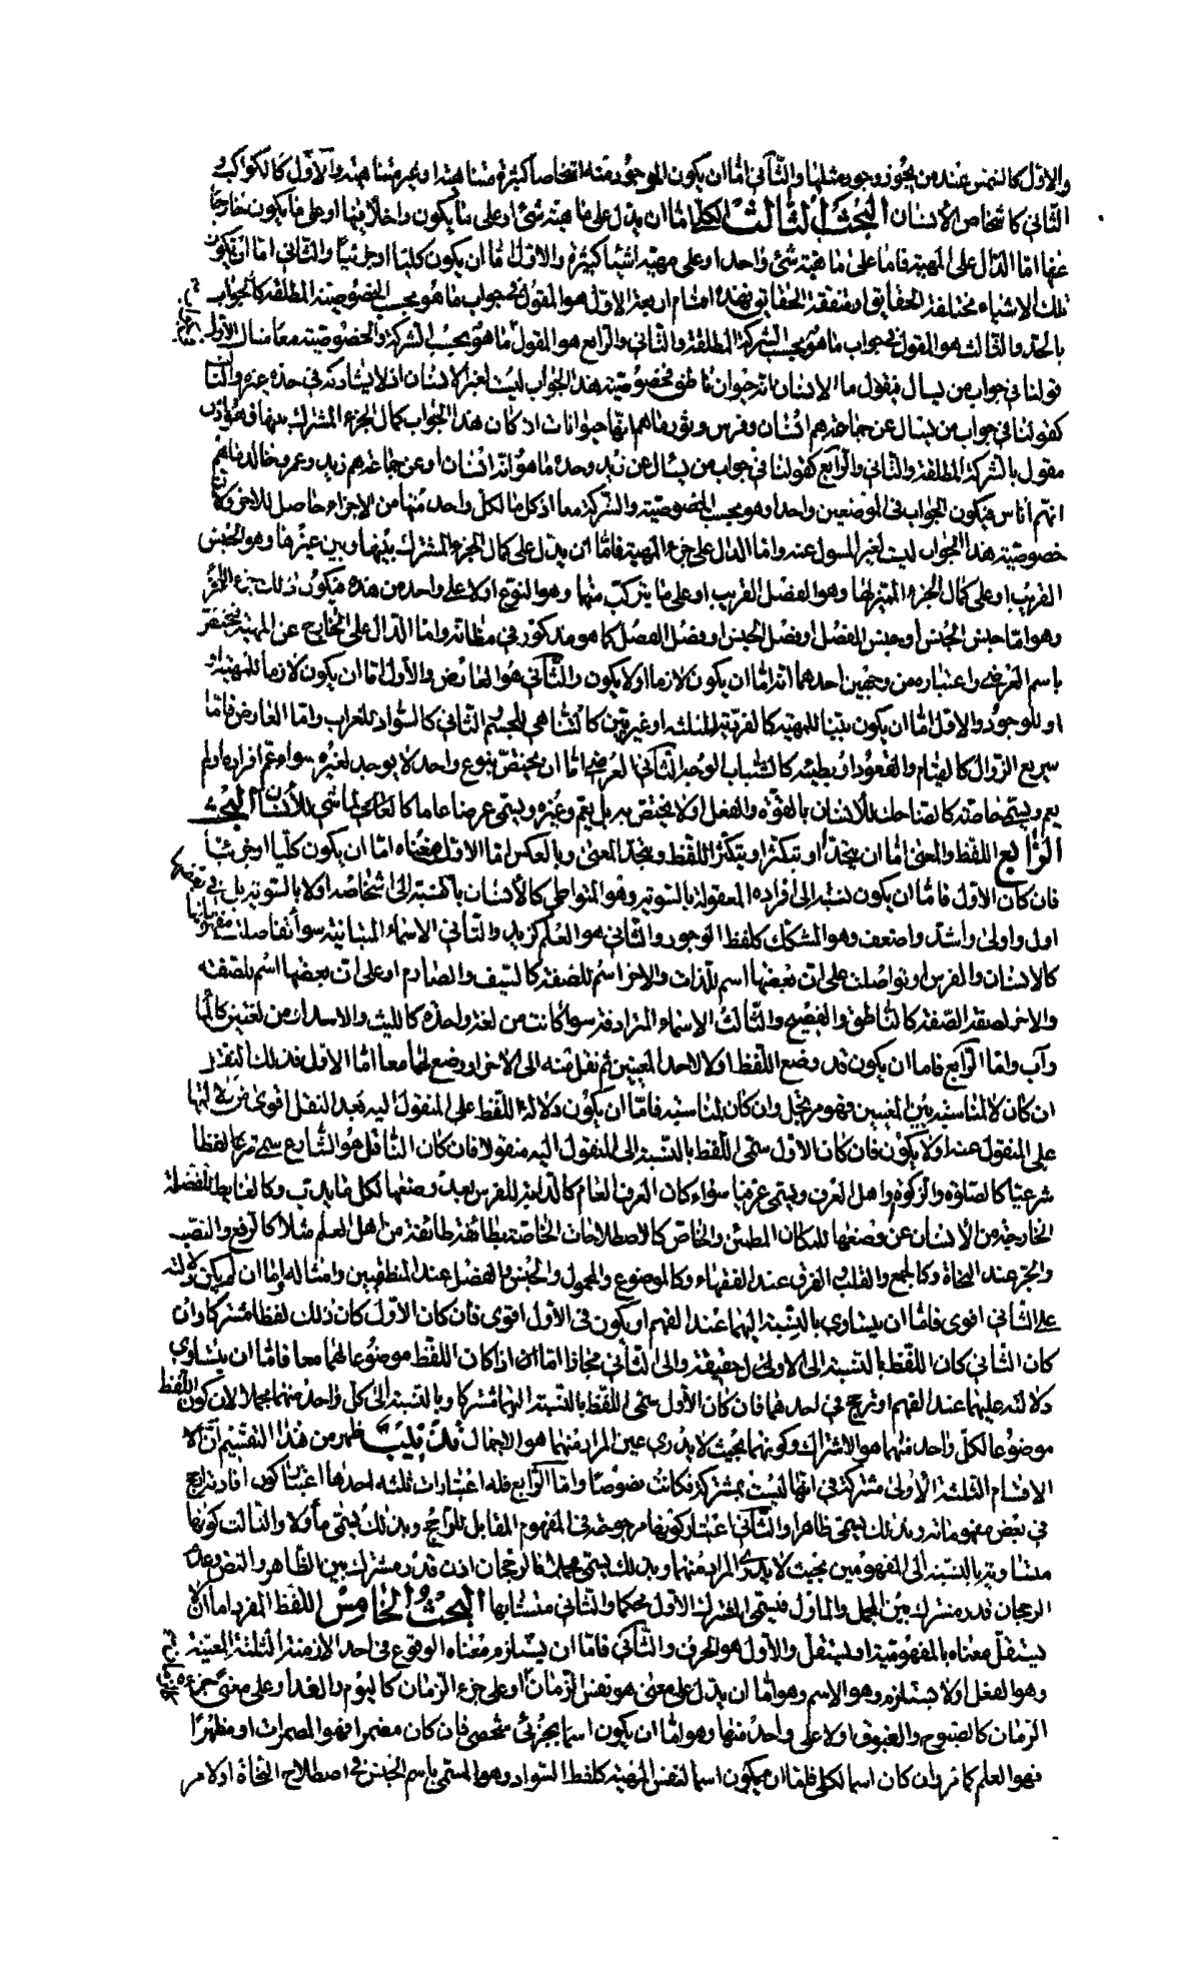 والاوّل كالشمس عند من يجوز وجود مثلها والثّاني امّا ان يكون الموجود منه اشخاصا كثيرة متناهية او غير متناهية والاوّل كالكواكب و
الثّاني كاشخاص الأنسان البحث الثالث الكلي امّا ان يدلّ على ماهيّة شئ او على ما يكون داخلا فيها او على ما يكون خارجا
عنها امّا الدّال على المهيّة فامّا على ماهيّة شئ واحد او على مهيّة اشياء كثيرة والاوّل امّا ان يكون كليّا او جزئيّا والثاني امّا ان يكون
تلك الاشياء مختلفة الحقايق او متّفقة الحقايق فهذه اقسام اربعة الاوّل هو المقول في جواب ما هو بحسب الخصوصيّة المطلقة كالجواب
بالحدّ والثالث هو المقول في جواب ما هو بحسب الشركة المطلقة والثاني والرابع هو المقول ما هو بحسب الشركة والخصوصيّة معا مثال الاوّل
قولنا في جواب من يسال فيقول ما الانسان انّه حيوان ناطق فخصوصيّة هذا الجواب ليست لغير الانسان اذ لا يشاركه في حدّه غيره والثالث
كقولنا في جواب من يسال عن جماعة هم انسان وفرس وثور ما هم انّها حيوانات اذ كان هذا الجواب كمال الجزء المشترك بينها فهو اذن
مقول بالشركة المطلقة والثاني والرابع كقولنا في جواب من يسال عن زيد وحده ما هو انّه انسان او عن جماعة هم زيد وعمرو وخالد ما هم
انّهم أناس فيكون الجواب في الموضعين واحدا وهو بحسب الخصوصيّة والشركة معا اذ كل ما لكلّ واحد منها من الاجزاء حاصل للاخر وكانت
خصوصيّة هذا الجواب ليست لغير المسول عنه وامّا الدّال على جزء المهيّة فامّا ان يدلّ على كمال الجزء المشترك بينها وبين غيرها وهو الجنس
القريب او على كمال الجزء المميّز لها وهو الفصل القريب او على ما يتركّب منهما وهو النوع او لا على واحد من هذه فيكون ذلك جزء الجزء
وهو امّا جنس الجنس او جنس الفصل او فصل الجنس او فصل الفصل كما هو مذكور في مظانّه وامّا الدّال على الخارج عن المهيّة فيختصّ
باسم العرضي واعتباره من وجهين احدهما انّه امّا ان يكون لازما او لا يكون والثّاني هو العارض والأوّل امّا ان يكون لازما للمهيّة
او للوجود والاوّل امّا ان يكون بيّنا للمهيّة كالفرديّة للثلاثة او غير بيّن كالتّناهي للجسم الثاني كالسّواد للغراب وامّا العارض فامّا
سريع الزوال كالقيام والقعود او بطيئه كالشباب الوجه الثّاني العرضي امّا ان يختصّ بنوع واحد لا يوجد لغيره سواء عمّ افراده او لم
يعم ويسمّى خاصّة كالضاحك للأنسان بالقوّة والفعل او لا يختصّ به بل يعمّه وغيره ويسمّى عرضا عاما كالماشي للأنسان البحث
الرابع اللفظ والمعنى امّا ان يتّحدا او يتكثّرا او يتكثّر اللّفظ ويتّحد المعنى وبالعكس امّا الاوّل فمعناه امّا ان يكون كلّيا او جزئيّا
فان كان الأوّل فامّا ان يكون نسبته الى افراده المعقولة بالسّويّة وهو المتواطي كالأنسان بالنسبة الى اشخاصه او لا بالسّويّة بل في بعضها
اول واولى واشدّ واضعف وهو المشكّك كلفظ الوجود والثّاني هو العلم كزيد والثّاني الاسماء المتباينة سواء تفاصلت مفهوماتها
كالانسان والفرس او تواصلت على انّ بعضها اسم للذّات والاخر اسم للصفة كالسّيف والصّارم او على انّ بعضها اسم للصفة
والاخر لصفة الصّفة كالنّاطق والفصيح والثّالث الاسماء المترادفة سواء كانت من لغة واحدة كالليث والاسد او من لغتين كالماء
وآب وامّا الرّابع فامّا ان يكون قد وضع اللّفظ اولا لاحد المعنيين ثم نقل منه الى الاخر او وضع لهما معا امّا الاوّل فذلك النقل
ان كان لا لمناسبة بين المعنيين فهو مرتجل وان كان لمناسبة فامّا ان يكون دلالة اللّفظ على المنقول اليه بعد النقل اقوى من دلالتها
على المنقول عنه او لا يكون فان كان الاوّل سمّى اللّفظ بالنّسبة الى المنقول اليه منقولا فان كان النّاقل هو الشّارع سمّى لفظا
شرعيّا كالصّلوة والزكوة او اهل العرف ويسمّى عرفيّا سواء كان العرف العام كالدّابة للفرس بعد وضعها لكل ما يدبّ وكالغايط للفضلة
الخارجة من الأنسان عن وضعها للمكان المطمئن والخاصّ كالاصطلاحات الخاصّة بطائفة طائفة من اهل العلم مثلا كالرفع والنصب
والجرّ عند النحاة وكالجمع والقلب والفرق عند الفقهاء وكالموضوع والمحمول والجنس والفصل عند المنطقيين وامثاله وامّا ان لم يكن دلالته
على الثّاني اقوى فامّا ان يتساوى بالنّسبة اليهما عند الفهم او يكون في الأوّل اقوى فان كان الأوّل كان ذلك لفظا مشتركا وان
كان الثّاني كان اللّفظ بالنّسبة الى الاوّل حقيقة والى الثّاني مجازا امّا ان اذا كان اللّفظ موضوعا لهما معا فامّا ان يتساوى
دلالته عليهما عند الفهم او ترجّح في احدهما فان كان الأوّل سمّى اللّفظ بالنّسبة اليهما مشتركا وبالنّسبة الى كلّ واحد منهما مجملا لان كون اللّفظ
موضوعا لكلّ واحد منهما هو الاشتراك وكونهما بحيث لا يدرى عين المراد منهما هو الاجمال تذنيب ظهر من هذا التقسيم انّ
الاقسام الثلثة الأولى مشتركة في انّها ليست بمشتركة فكانت نصوصا وامّا الرّابع فله اعتبارات ثلثه احدها اعتبار كون افادته
في بعض مفهوماته وبذلك يسمّى ظاهرا والثّاني اعتبار كونها مرجوحة في المفهوم المقابل للرّاجح وبذلك يسمّى مأوّلا والثالث كونها
متساوية بالنسبة الى المفهومين بحيث لا يدرى المراد منهما وبذلك يسمّى مجملا فالرّجحان اذن قدر مشترك بين الظاهر والنصّ وعدم
الرجحان قدر مشترك بين المجمل والماوّل فيسمّى المشترك الأوّل محكما والثاني متشابها البحث الخامس اللفظ المفرد امّا ان لا
يستقلّ معناه بالمفهوميّة او يستقلّ والأوّل هو الحرف والثّاني فامّا ان يستلزم معناه الوقوع في احد الازمنة الثلثة المعيّنة
وهو الفعل او لا يستلزم وهو الاسم وهو امّا ان يدلّ على معنى هو نفس الزّمان او على جزء الزمان كاليوم والغد او على معنى جزءه
الزمان كالصّبوح والغبوق او لا على واحد منها وهو امّا ان يكون اسما لجزئي شخصي فان كان مضمرا فهو المضمرات او مظهرا
فهو العلم كما مرّ وان كان اسما لكلي فامّا ان يكون اسما لنفس المهيّة كلفظ السّواد وهو المسمّى باسم الجنس في اصطلاح النحاة او لامر